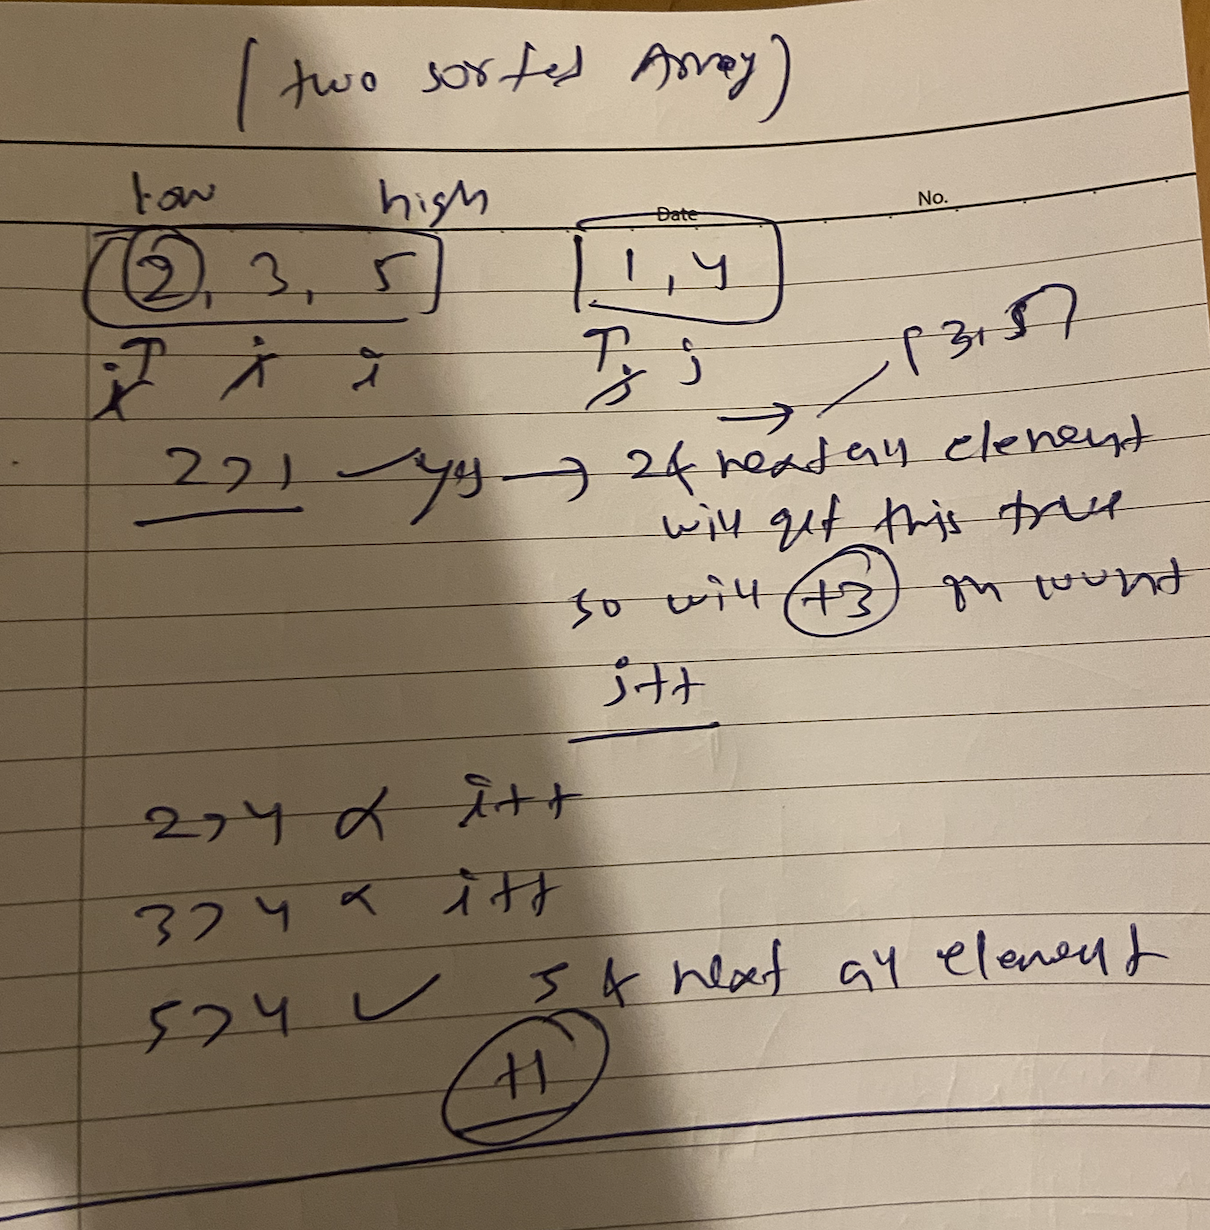 (two sorted Array)
low high
Date No.
2, 3, 5 1, 4
i i i j j (3, 5)
2 > 1 yes → 2 & next all element
will get this true
so will +3 in count
j++
2 > 4 × i++
3 > 4 × i++
5 > 4 ✓ 5 & next all element
+1